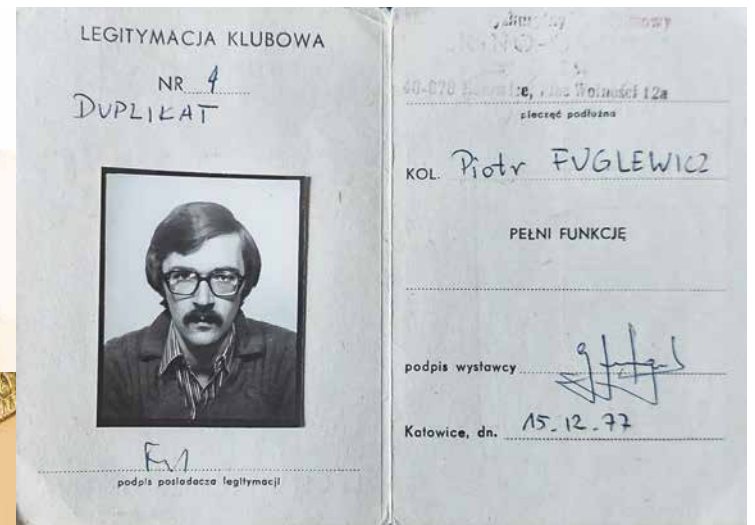 LEGITYMACJA KLUBOWA
NR 4
DUPLIKAT
podpis posiadacza legitymacji
40-078 Wolności 12a
pieczęć podłużna
KOL. Piotr FUGLEWICZ
PEŁNI FUNKCJĘ
podpis wystawcy
Katowice, dn. 15.12.77